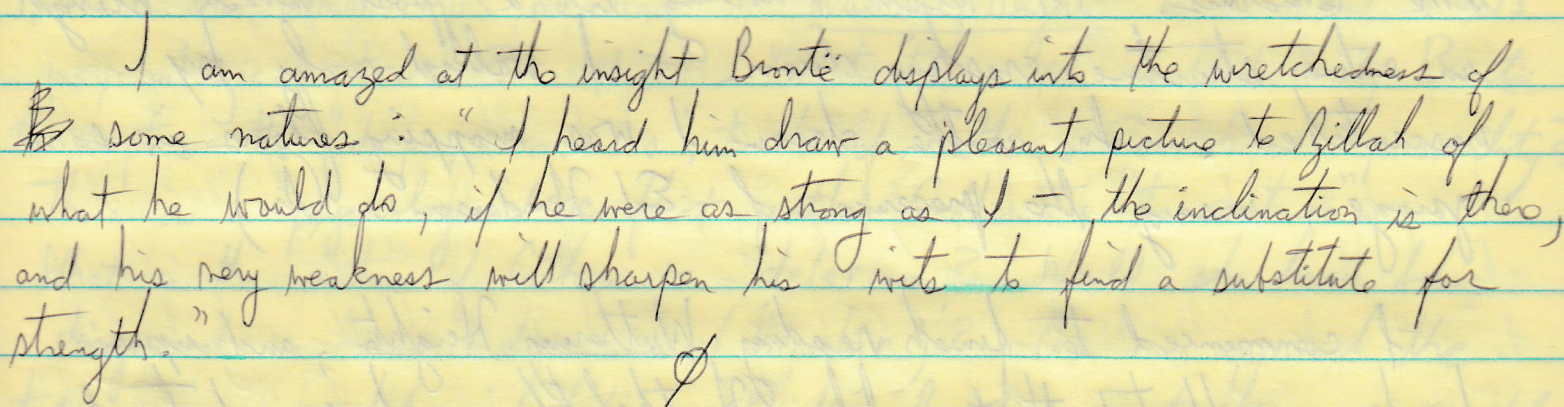 I am amazed at the insight Brontë displays into the wretchedness of
some natures: "I heard him draw a pleasant picture to Zillah of
what he would do, if he were as strong as I – the inclination is there,
and his very weakness will sharpen his wits to find a substitute for
strength."